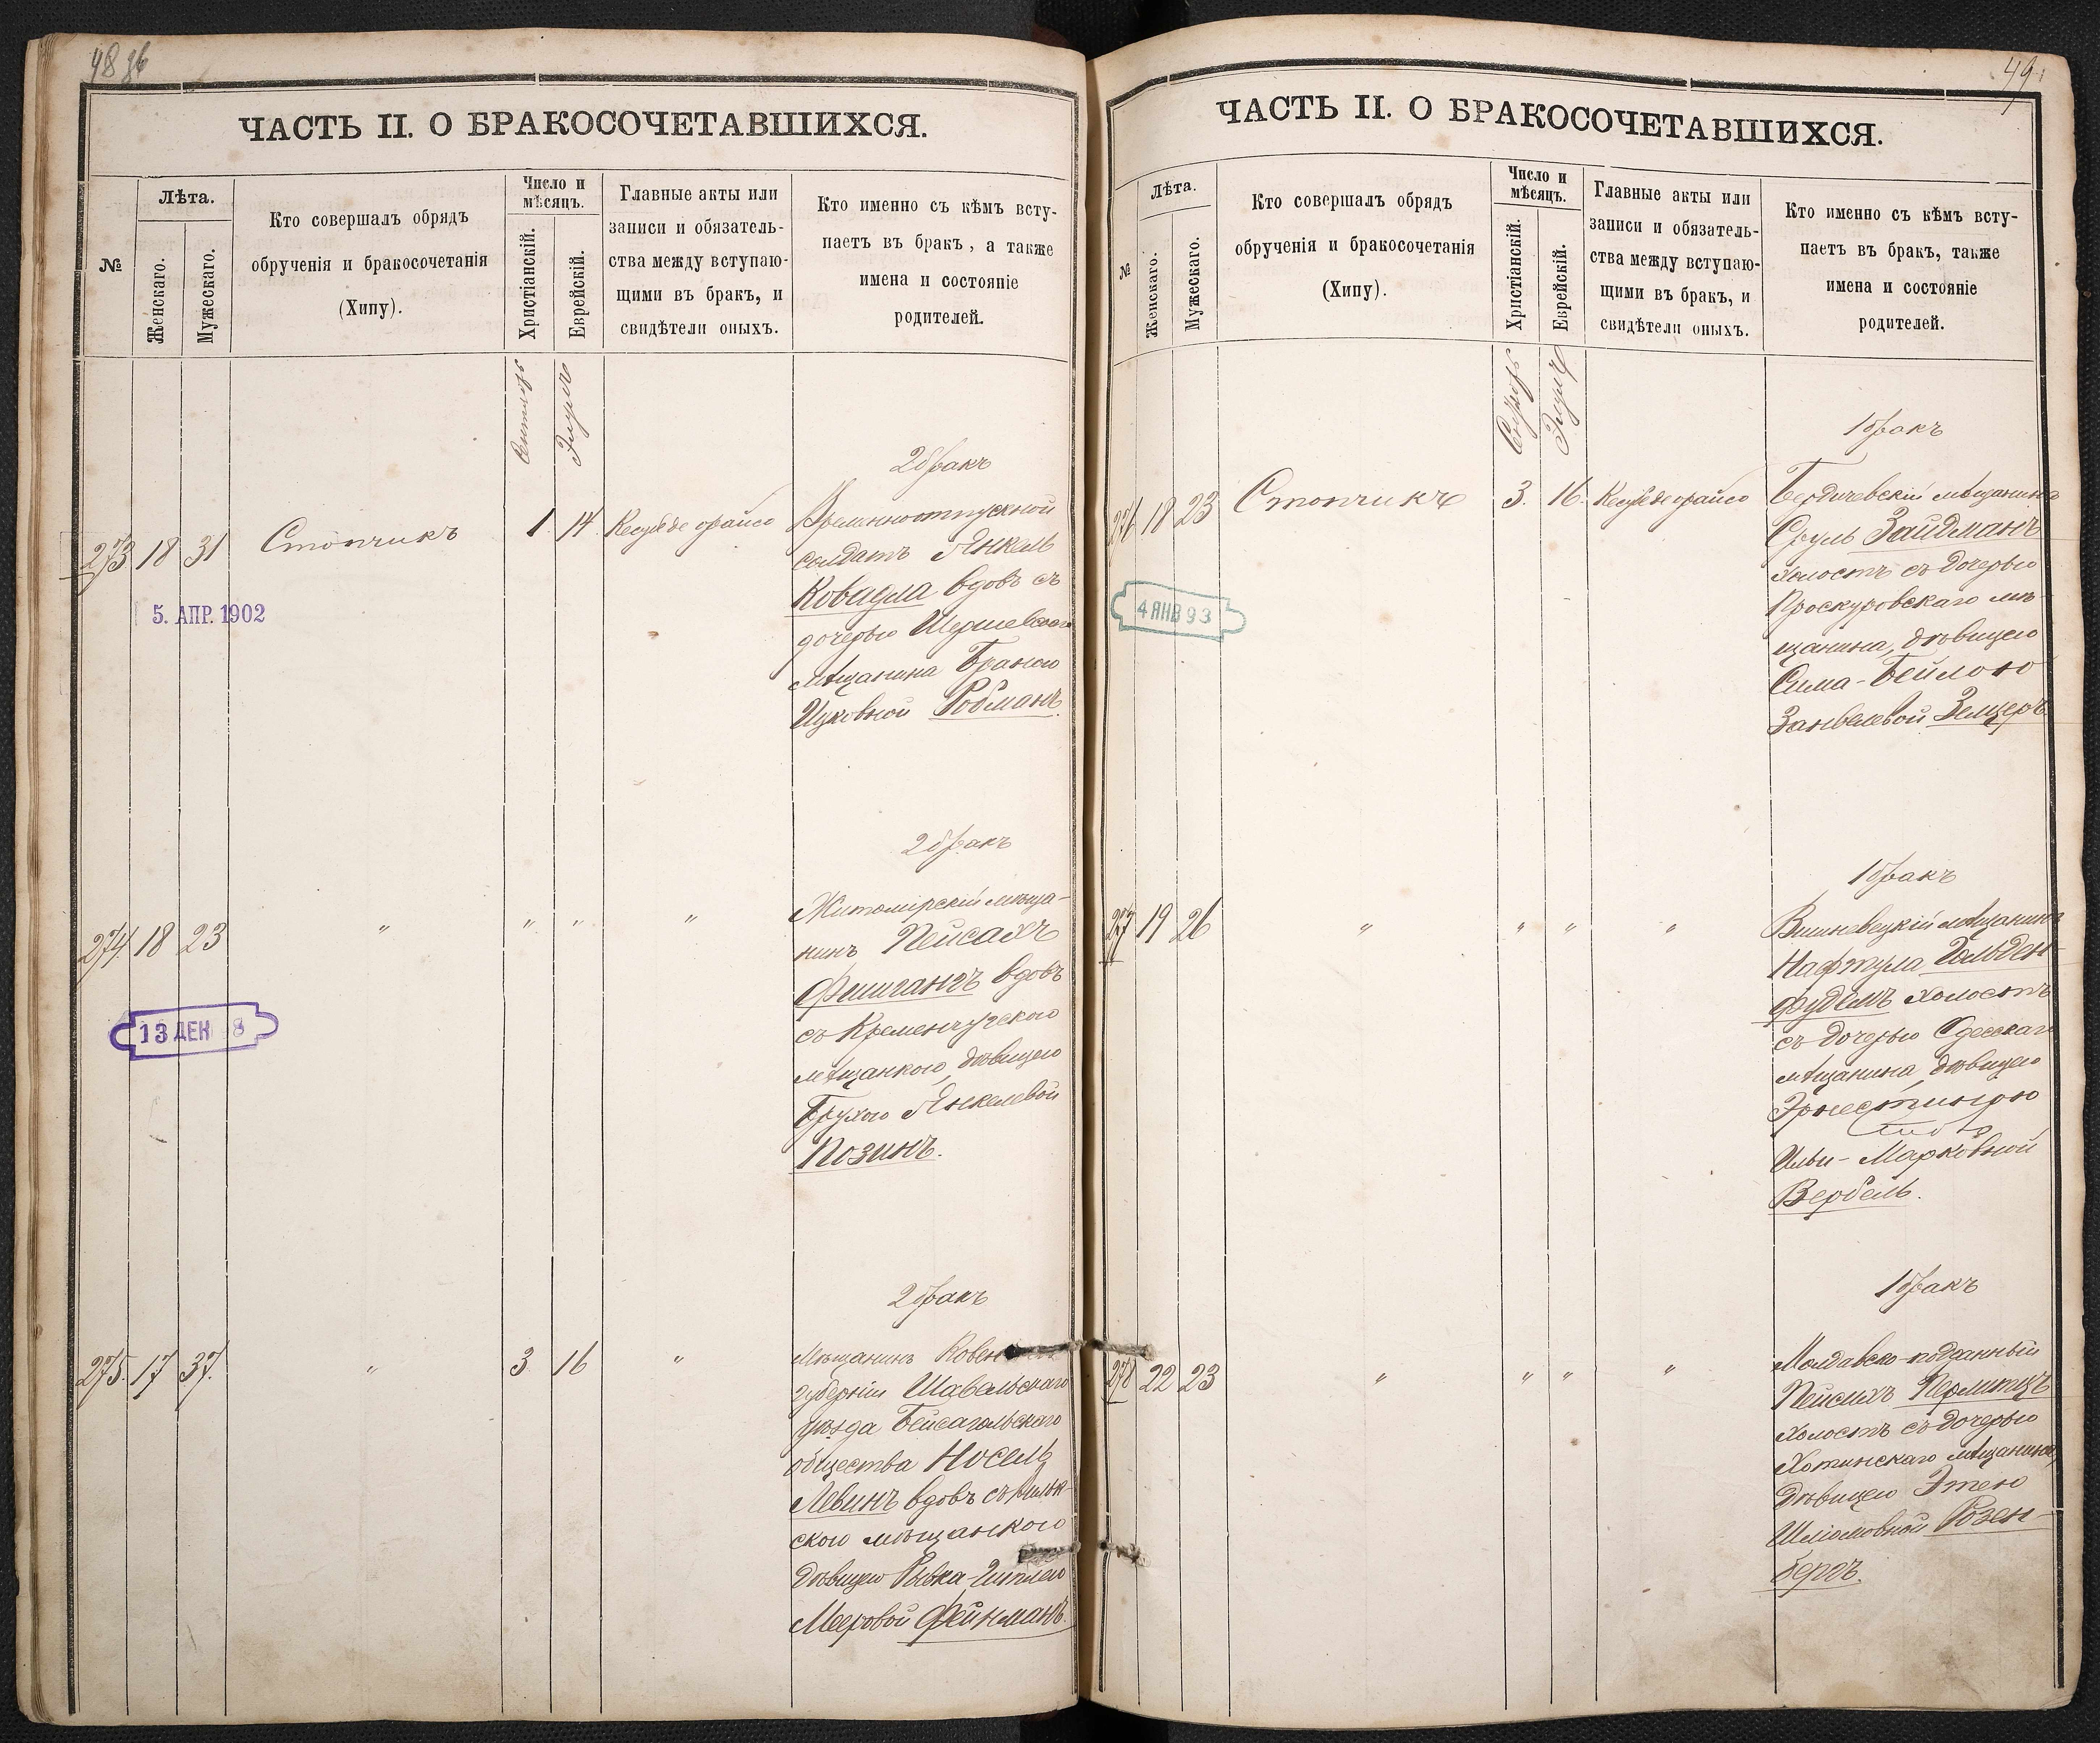 48 зв
ЧАСТЬ II. О БРАКОСОЧЕТАВШИХСЯ.
№
Лѣта.
Женскаго.
Мужескаго.
Кто совершалъ обрядъ
обрученія и бракосочетанія
(Хипу).
Число и
мѣсяцъ.
Христіанскій.
Еврейскій.
Главные акты или
записи и обязатель-
ства между вступаю-
щими въ бракъ, и
свидѣтели оныхъ.
Кто именно съ кѣмъ всту-
паетъ въ бракъ, а также
имена и состояніе
родителей.
Сентябрь
Элулъ
2 бракъ
273 18 31 Стопчикъ 1. 14
Временноотпускной
солдатъ Янкель
вдовъ съ
дочерью
мѣщанина
Ицковной Ройтманъ.
5. АПР. 1902
2 бракъ
274. 18 23 " " " "
Житомирскій мѣща-
нинъ Пейсахъ
Фишгангъ вдовъ
съ Кременчугскою
мѣщанкою, дѣвицею
Брухою Янкелевой
Позинъ.
13 ДЕК 8
2 бракъ
275. 17 37. " 3. 16 "
Мѣщанинъ Ковен
губерніи Шавельскаго
уѣзда Бейсагольскаго
общества Носель
Левинъ вдовъ съ
скою мѣщанкою
дѣвицею Рывка-Циплею
Мееровой Фейнманъ.
49
ЧАСТЬ II. О БРАКОСОЧЕТАВШИХСЯ.
№
Лѣта.
Женскаго.
Мужескаго.
Кто совершалъ обрядъ
обрученія и бракосочетанія
(Хипу).
Число и
мѣсяцъ.
Христіанскій.
Еврейскій.
Главные акты или
записи и обязатель-
ства между вступаю-
щими въ бракъ, и
свидѣтели оныхъ.
Кто именно съ кѣмъ всту-
паетъ въ бракъ, также
имена и состояніе
родителей.
Сентябрь
Элулъ
1 бракъ
276 18 23 Стопчикъ 3. 16.
Бердичевскій мѣщанинъ
Сруль Зайдманъ
холостъ съ дочерью
Проскуровскаго мѣ-
щанина, дѣвицею
Сима-Бейлою
Занвелевой Зельцеръ
4 ЯНВ 93
1 бракъ
277 19 26 " " " "
Вишневецкій мѣщанинъ
Нафтула Гольден-
фудимъ холостъ
съ дочерью Одесскаго
мѣщанина, дѣвицею
Эрнестиною
Марковной
Вербель.
1 бракъ
278 22 23 " " " "
Молдавско-подданный
Пейсихъ Перлитцъ
холостъ съ дочерью
Хотинскаго мѣщанина,
дѣвицею Этею
Шліомовной Розен-
бергъ.